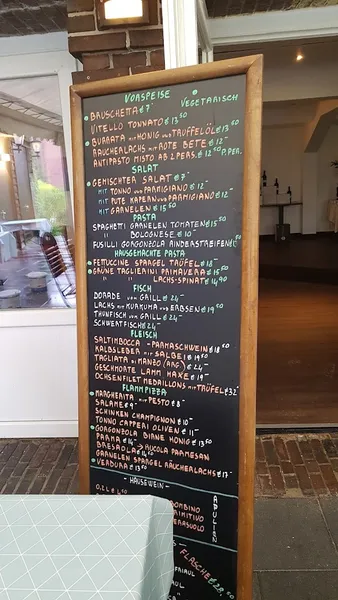 VORSPEISE • VEGETARISCH
• BRUSCHETTA € 7-
VITELLO TONNATO € 13,50
• BURRATA MIT HONIG UND TRÜFFELÖL € 13,50
RÄUCHERLACHS MIT ROTE BETE € 12-
ANTIPASTO MISTO AB 2 PERS. € 12,50 P.PER.
SALAT
• GEMISCHTER SALAT € 7-
MIT TONNO UND PARMIGIANO € 12-
MIT PUTE KAPERN UND PARMIGIANO € 12-
MIT GARNELEN € 15,50
PASTA
SPAGHETTI GARNELEN TOMATEN € 15,50
" BOLOGNESE € 10-
FUSILLI GORGONZOLA RINDERSTREIFEN
HAUSGEMACHTE PASTA
• FETTUCCINE SPARGEL TRÜFFEL € 18-
• GRÜNE TAGLIERINI PRIMAVERA € 15,50
" " LACHS-SPINAT € 14,90
FISCH
DORADE VOM GRILL € 24-
LACHS MIT KURKUMA UND ERBSEN € 19,50
THUNFISCH VOM GRILL € 24-
SCHWERTFISCH € 24-
FLEISCH
SALTIMBOCCA - PARMASCHWEIN € 18,50
KALBSLEBER MIT SALBEI € 19,50
TAGLIATA DI MANZO (ARG.) € 24-
GESCHMORTE LAMM HAXE € 19-
OCHSENFILET MEDAILLONS MIT TRÜFFEL € 32-
FLAMMPIZZA
• MARGHERITA MIT PESTO € 8-
SALAME € 9-
SCHINKEN CHAMPIGNON € 10-
TONNO CAPPERI OLIVEN € 11-
• GORGONZOLA BIRNE HONIG € 13,50
PARMA € 14- → RUCOLA PARMESAN
BRESAOLA € 14,50
GARNELEN SPARGEL RÄUCHERLACHS € 17-
• VERDURA € 13,50
- HAUSWEIN -
0,2 L €
OMBINO
RIMITIVO
ERASUOLO
APULIEN
FLASCHE € 28,50
FRIAUL
AUL